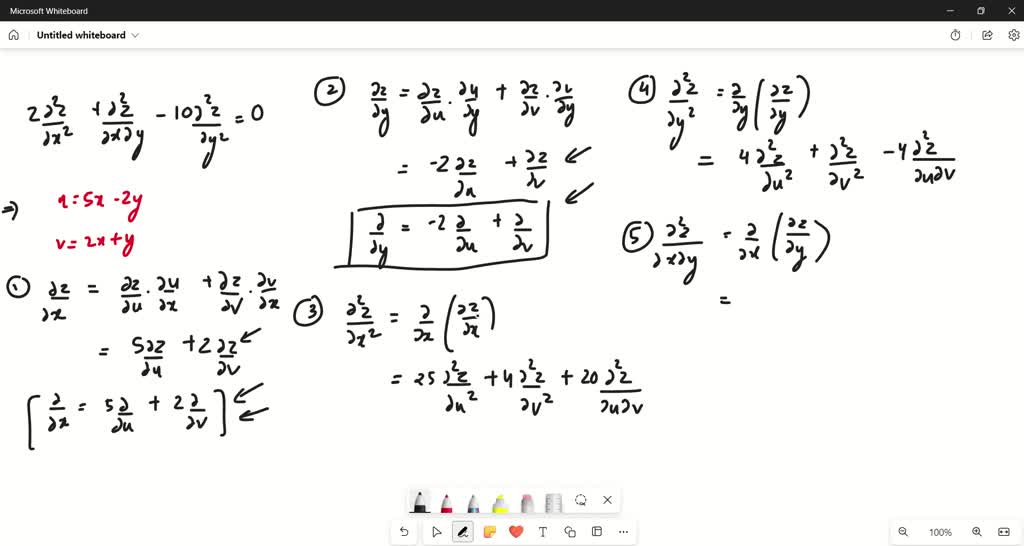 Microsoft Whiteboard
Untitled whiteboard
2∂²z/∂x² + ∂²z/∂x∂y - 10∂²z/∂y² = 0
⇒ u = 5x - 2y
v = 2x + y
① ∂z/∂x = ∂z/∂u · ∂u/∂x + ∂z/∂v · ∂v/∂x
= 5∂z/∂u + 2∂z/∂v
[∂/∂x = 5∂/∂u + 2∂/∂v]
② ∂z/∂y = ∂z/∂u · ∂u/∂y + ∂z/∂v · ∂v/∂y
= -2∂z/∂u + ∂z/∂v
∂/∂y = -2∂/∂u + ∂/∂v
③ ∂²z/∂x² = ∂/∂x (∂z/∂x)
= 25∂²z/∂u² + 4∂²z/∂v² + 20∂²z/∂u∂v
④ ∂²z/∂y² = ∂/∂y (∂z/∂y)
= 4∂²z/∂u² + ∂²z/∂v² - 4∂²z/∂u∂v
⑤ ∂²z/∂x∂y = ∂/∂x (∂z/∂y)
=
100%